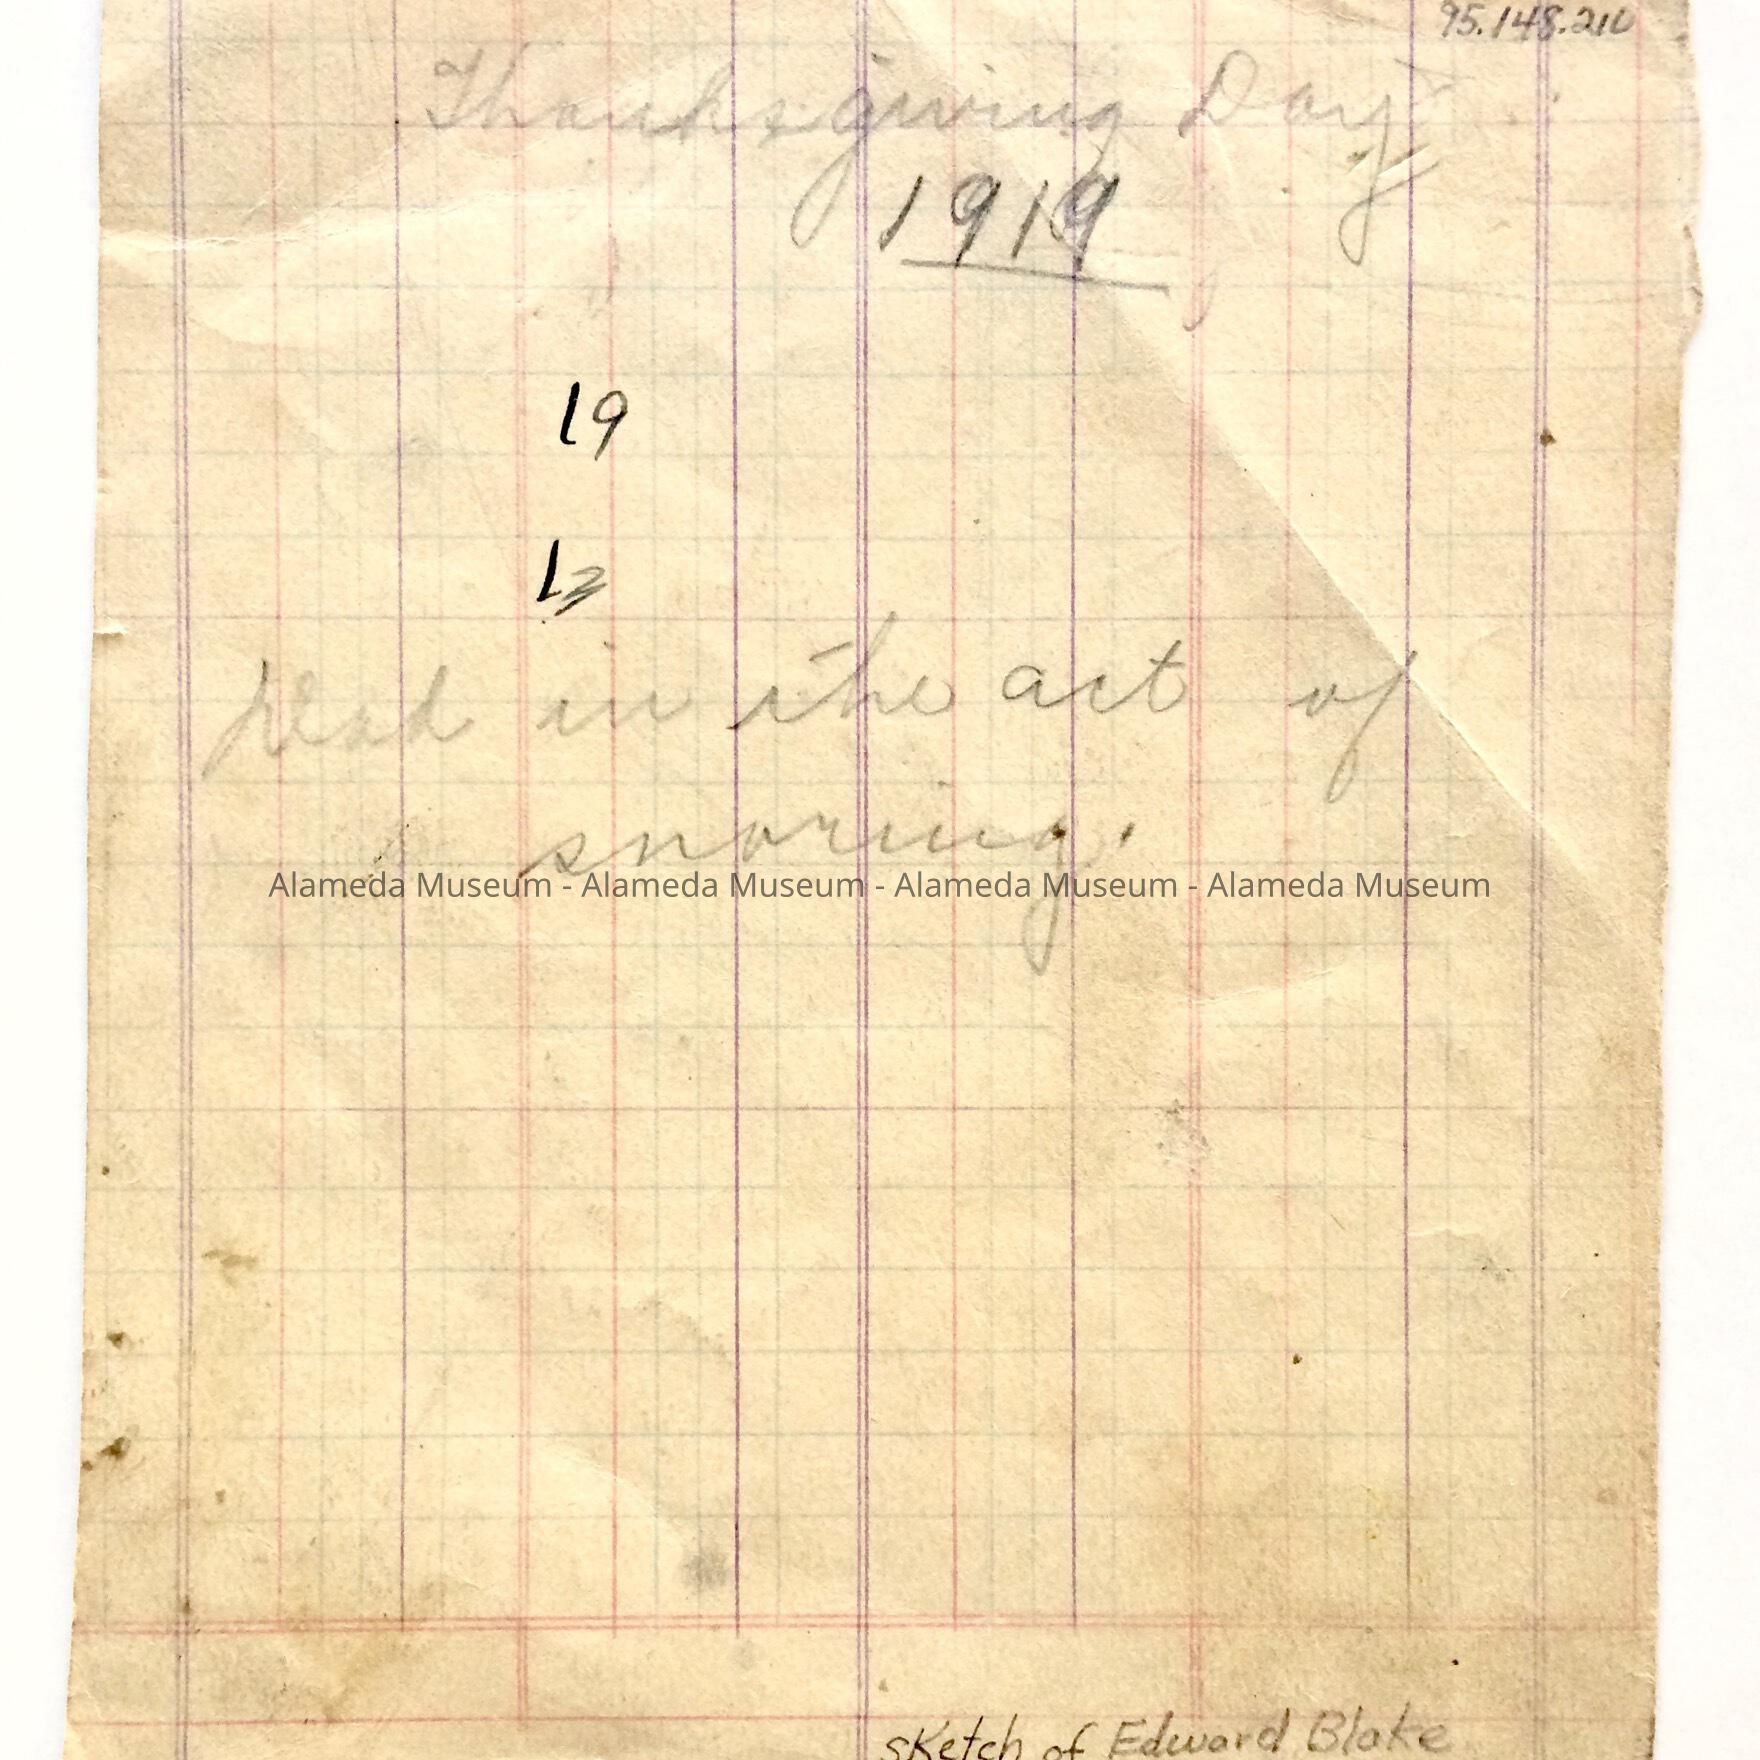 95.148.210
Thanksgiving Day
1919
19
13
in the act of
snoring.
Alameda Museum - Alameda Museum - Alameda Museum - Alameda Museum
sketch of Edward Blake